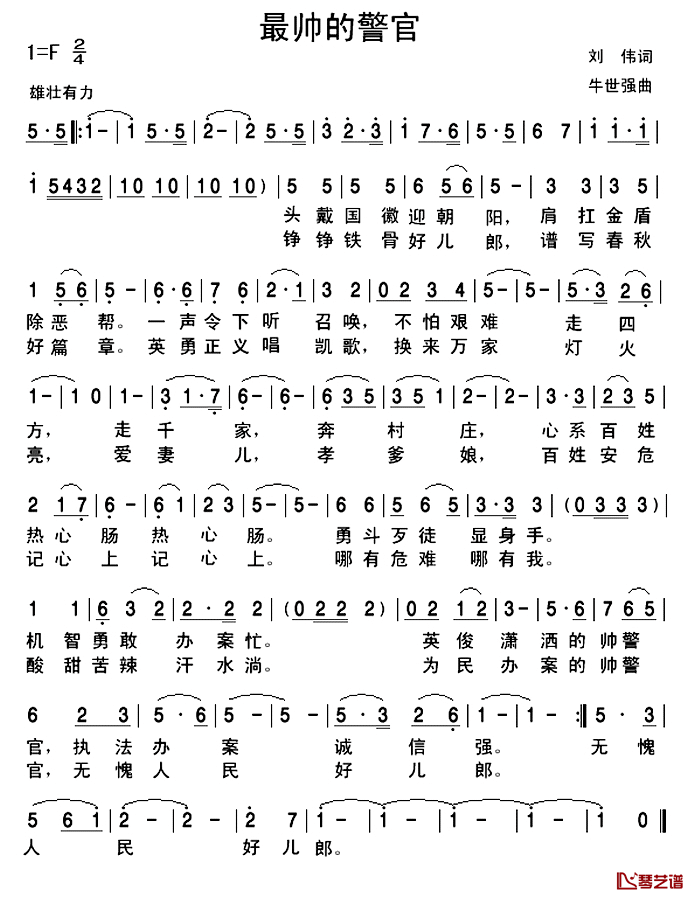 最帅的警官
1=F 2/4
刘 伟词
雄壮有力
牛世强曲
5·5|:1-|1 5·5|2-|2 5·5|3 2·3|1 7·6|5·5|6 7|1 1·1|
1 5432|10 10|10 10|10 10)|5 5|5 5|6 5 6|5-|3 3|3 5|
头 戴 国 徽 迎 朝 阳， 肩 扛 金 盾
铮 铮 铁 骨 好 儿 郎， 谱 写 春 秋
1 5 6|5-|6·6|7 6|2·1|3 2|0 2 3 4|5-|5-|5·3 2 6|
除 恶 帮。 一 声 令 下 听 召 唤， 不 怕 艰 难 走 四
好 篇 章。 英 勇 正 义 唱 凯 歌， 换 来 万 家 灯 火
1-|1 0|1-|3 1·7|6-|6-|6 3 5|3 5 1|2-|2-|3·3|2 3 5|
方， 走 千 家， 奔 村 庄， 心 系 百 姓
亮， 爱 妻 儿， 孝 爹 娘， 百 姓 安 危
2 1 7|6-|6 1|2 3|5-|5-|6 6|5 6 5|3·3 3|(0 3 3 3)|
热 心 肠 热 心 肠。 勇 斗 歹 徒 显 身 手。
记 心 上 记 心 上。 哪 有 危 难 哪 有 我。
1 1|6 3 2|2·2 2|(0 2 2 2)|0 2 1 2|3-|5·6|7 6 5|
机 智 勇 敢 办 案 忙。 英 俊 潇 洒 的 帅 警
酸 甜 苦 辣 汗 水 淌。 为 民 办 案 的 帅 警
6 2 3|5·6|5-|5-|5·3|2 6|1-|1-:|5·3|
官， 执 法 办 案 诚 信 强。 无 愧
官， 无 愧 人 民 好 儿 郎。
5 6 1|2-|2-|2 7|1-|1-|1-|1 0||
人 民 好 儿 郎。
琴艺谱